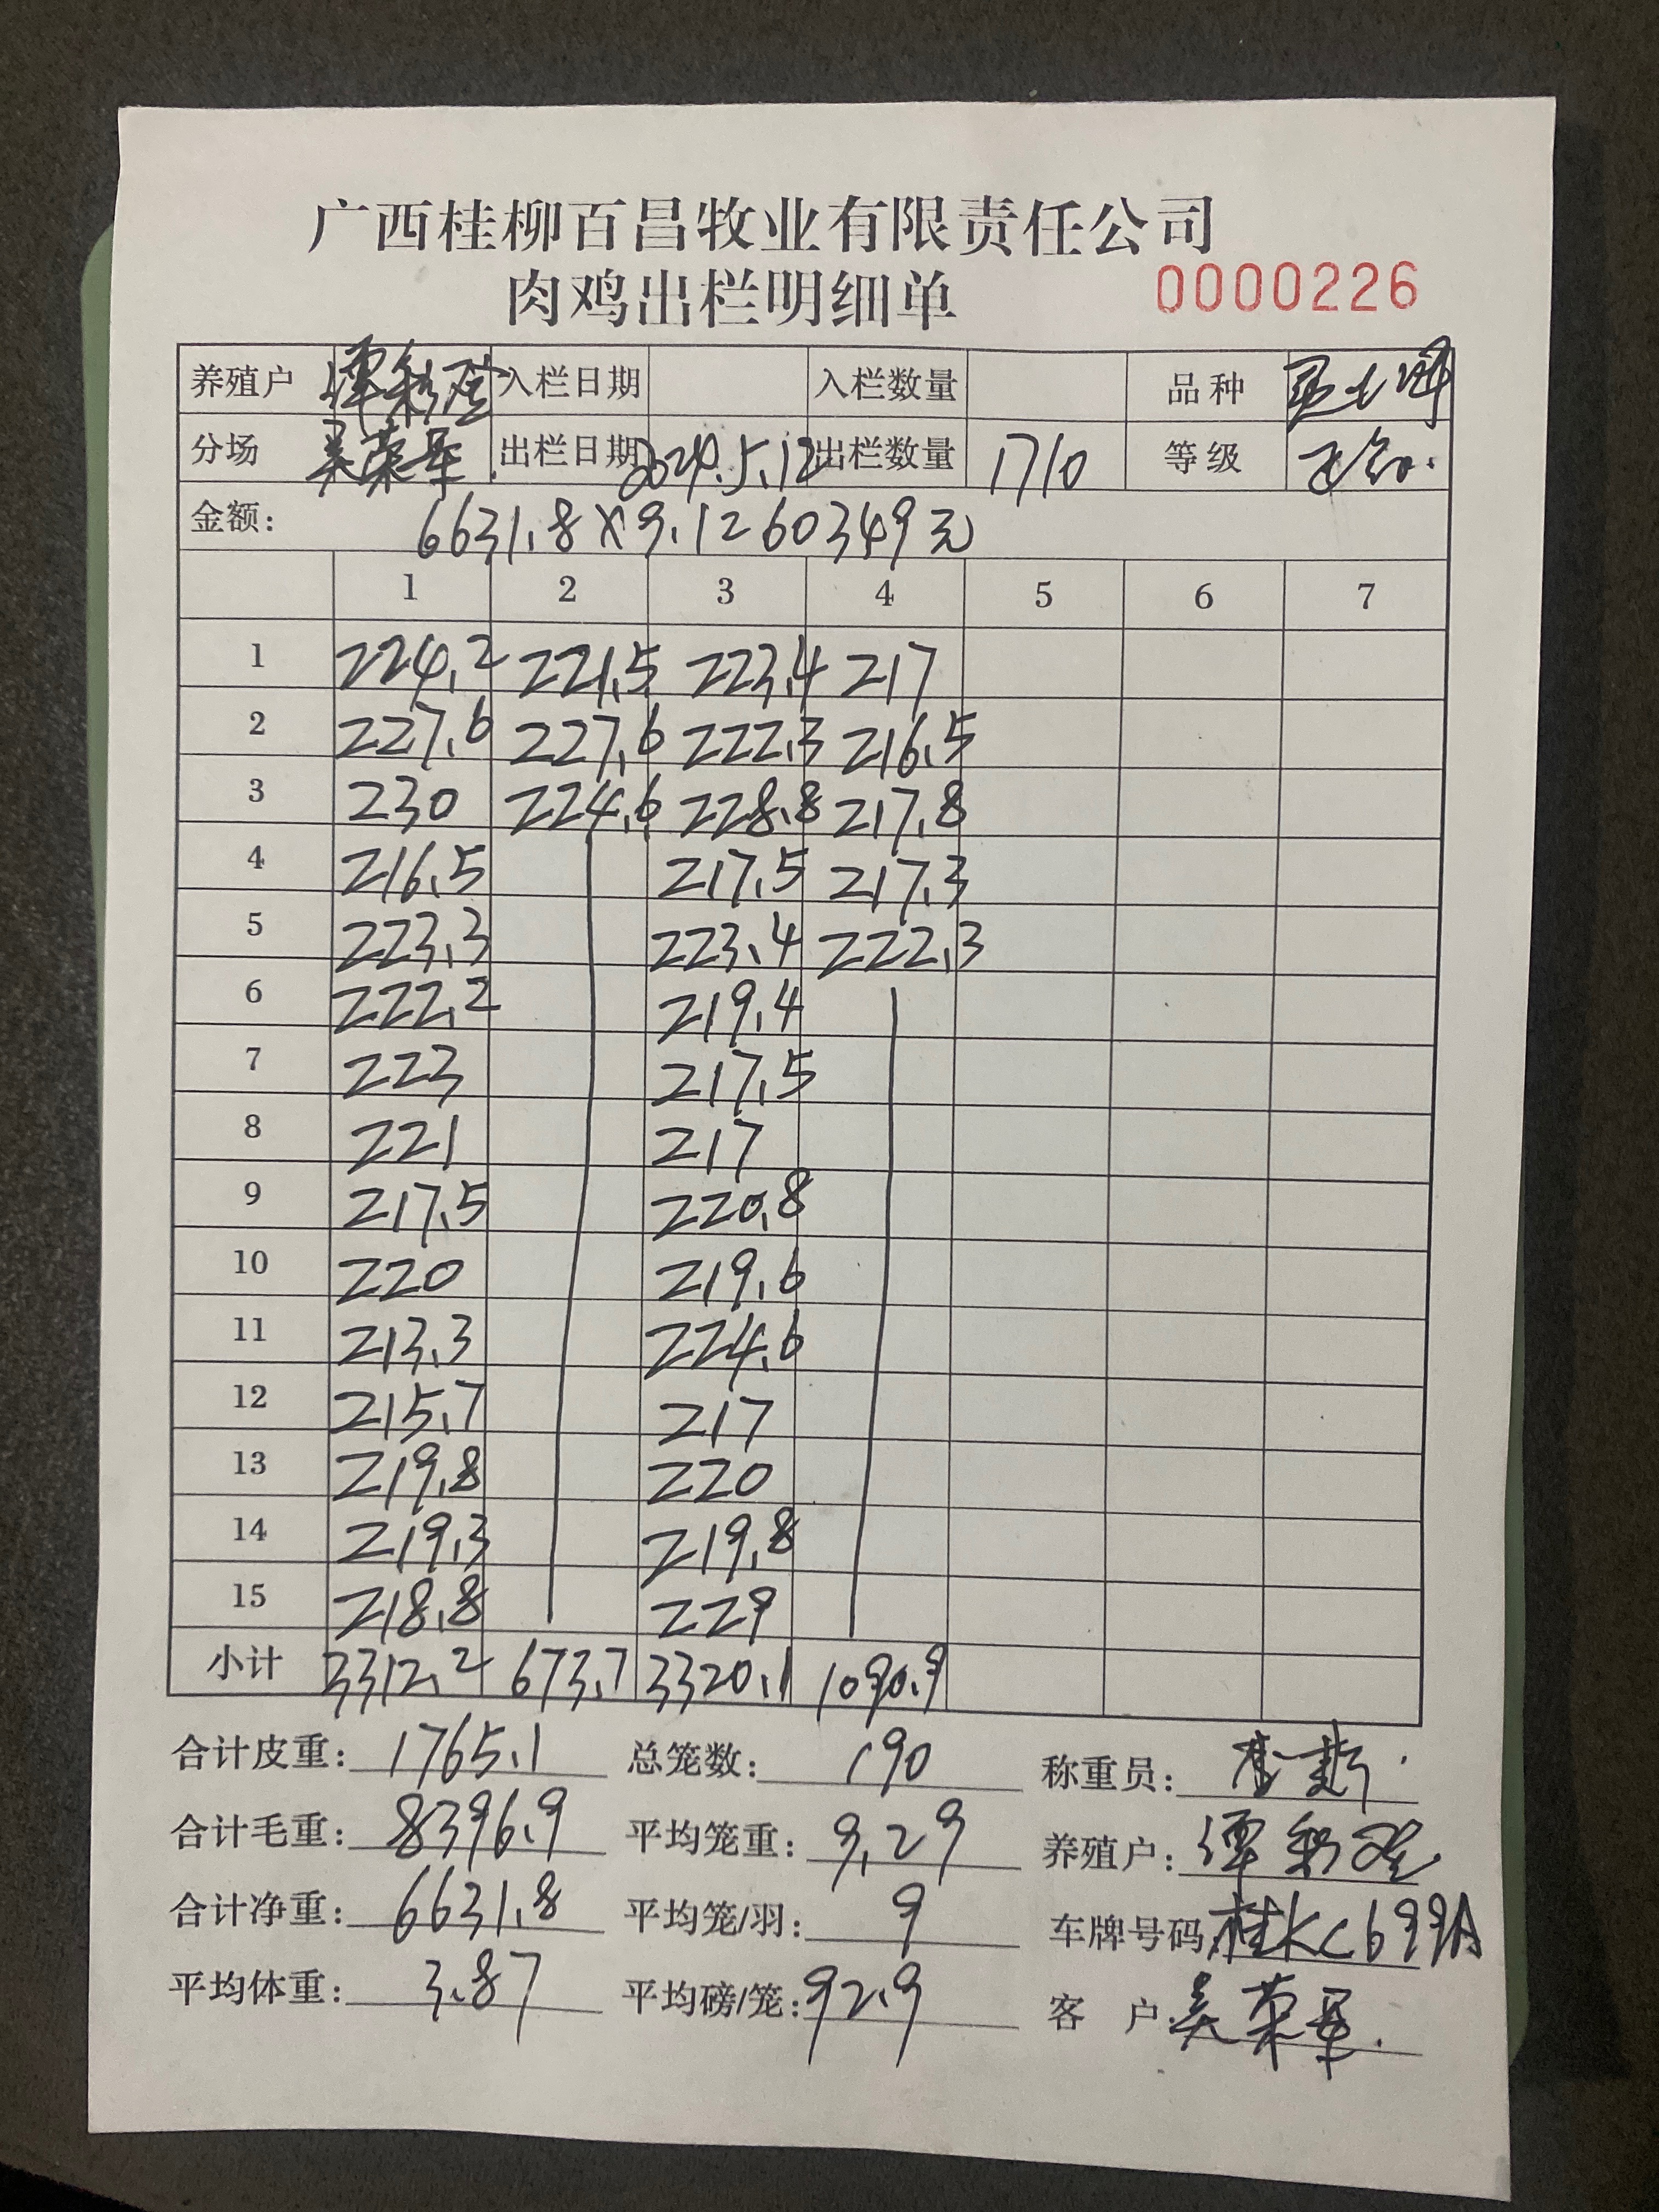 广西桂柳百昌牧业有限责任公司
肉鸡出栏明细单 0000226
养殖户 入栏日期 入栏数量 品种
分场 吴荣军 出栏日期 2024.5.12 出栏数量 1710 等级
金额: 6631.8X9.1 260349元
1 2 3 4 5 6 7
1 224.2 221.5 223.4 217
2 227.6 227.6 222.3 216.5
3 230 224.6 228.8 217.8
4 216.5 217.5 217.3
5 223.3 223.4 222.3
6 222.2 219.4
7 223 217.5
8 221 217
9 217.5 220.8
10 220 219.6
11 213.3 224.6
12 215.7 217
13 219.8 220
14 219.3 219.8
15 218.8 229
小计 3312.2 673.7 3320.1 1090.9
合计皮重: 1765.1 总笼数: 190 称重员:
合计毛重: 8396.9 平均笼重: 9.29 养殖户:
合计净重: 6631.8 平均笼/羽: 9 车牌号码 桂KC699A
平均体重: 3.87 平均磅/笼: 92.9 客户: 吴荣军